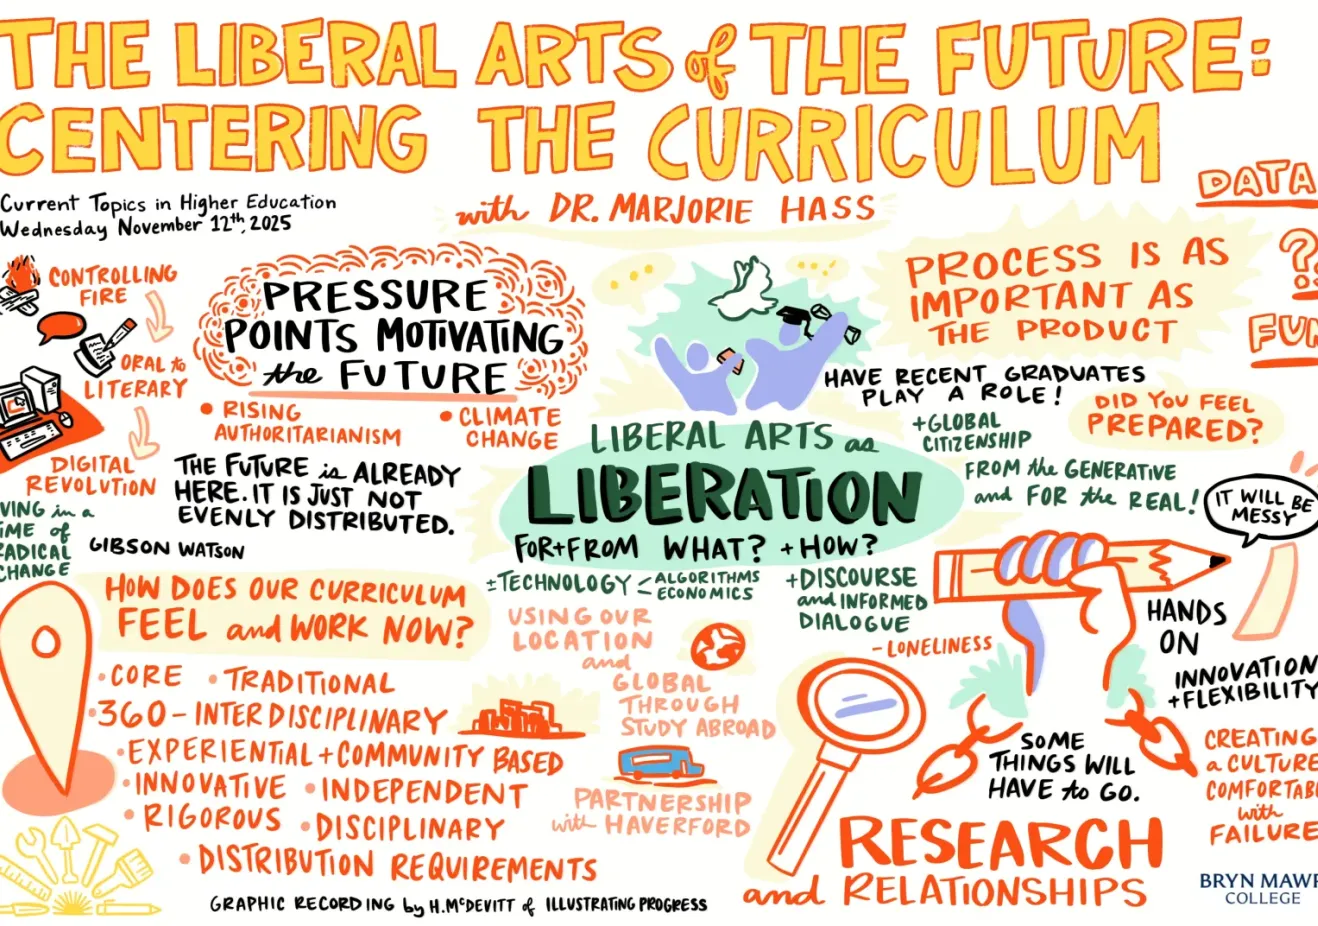 THE LIBERAL ARTS of THE FUTURE:
CENTERING THE CURRICULUM
with DR. MARJORIE HASS
Current Topics in Higher Education
Wednesday November 12th, 2025
DATA
CONTROLLING
FIRE
ORAL to
LITERARY
DIGITAL
REVOLUTION
VING in a
IME of
RADICAL
CHANGE
PRESSURE
POINTS MOTIVATING
the FUTURE
• RISING
AUTHORITARIANISM
• CLIMATE
CHANGE
THE FUTURE is ALREADY
HERE. IT IS JUST NOT
EVENLY DISTRIBUTED.
GIBSON WATSON
HOW DOES OUR CURRICULUM
FEEL and WORK NOW?
• CORE • TRADITIONAL
• 360-INTERDISCIPLINARY
• EXPERIENTIAL + COMMUNITY BASED
• INNOVATIVE • INDEPENDENT
• RIGOROUS • DISCIPLINARY
• DISTRIBUTION REQUIREMENTS
GRAPHIC RECORDING by H.McDEVITT of ILLUSTRATING PROGRESS
LIBERAL ARTS as
LIBERATION
FOR+FROM WHAT? + HOW?
± TECHNOLOGY < ALGORITHMS
ECONOMICS
+ DISCOURSE
and INFORMED
DIALOGUE
- LONELINESS
USING OUR
LOCATION
and
GLOBAL
THROUGH
STUDY ABROAD
PARTNERSHIP
with HAVERFORD
PROCESS IS AS
IMPORTANT AS
THE PRODUCT
?
FUN
HAVE RECENT GRADUATES
PLAY A ROLE!
DID YOU FEEL
PREPARED?
+ GLOBAL
CITIZENSHIP
FROM the GENERATIVE
and FOR the REAL!
IT WILL BE
MESSY
HANDS
ON
INNOVATION
+ FLEXIBILITY
SOME
THINGS WILL
HAVE to GO.
CREATING
a CULTURE
COMFORTAB
with
FAILURE
RESEARCH
and RELATIONSHIPS
BRYN MAWR
COLLEGE